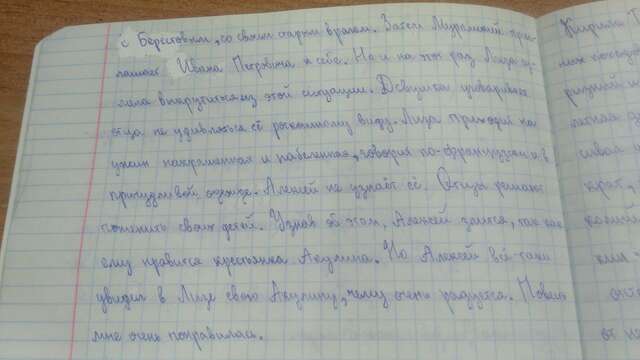 с Берестовым, со своим старым врагом. Затем Муромский при-
глашает Ивана Петровича к себе. Но и на этот раз Лиза су-
мела выкрутиться из этой ситуации. Девушка уговаривает
отца не удивляться её роскошному виду. Лиза приходит на
ужин накрашенная и набеленная, говорит по-французски и в
причудливой одежде. Алексей не узнаёт её. Отцы решают
поженить своих детей. Узнав об этом, Алексей злится, так как
ему нравится крестьянка Акулина. Но Алексей всё-таки
увидел в Лизе свою Акулину, чему очень радуется. Повесть
мне очень понравилась.
Кирила